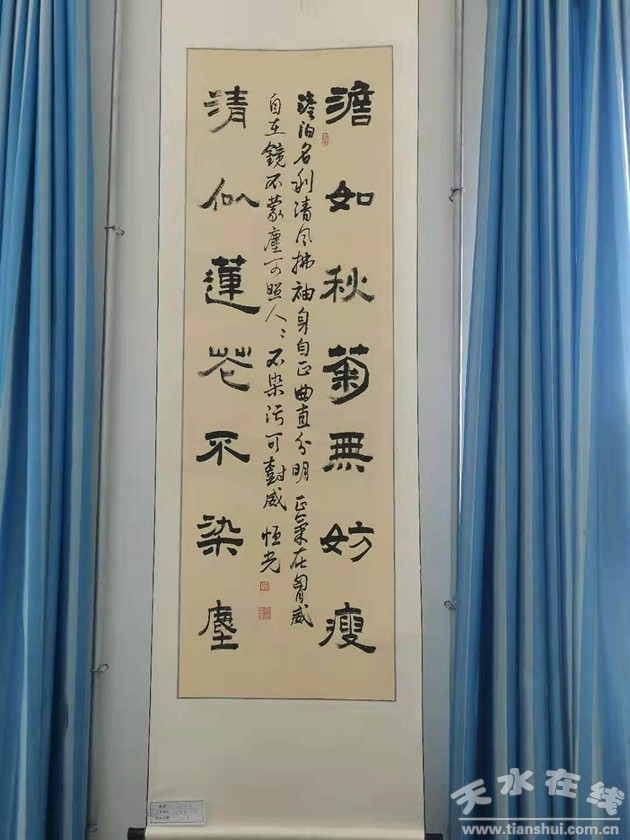 澹如秋菊無妨瘦
澹泊名利清风拂袖身自正曲直分明正氣在胷威
自在鏡不蒙塵可照人:不染污可對威 恒光
清似蓮花不染塵
天水在线
www.tianshui.com.cn